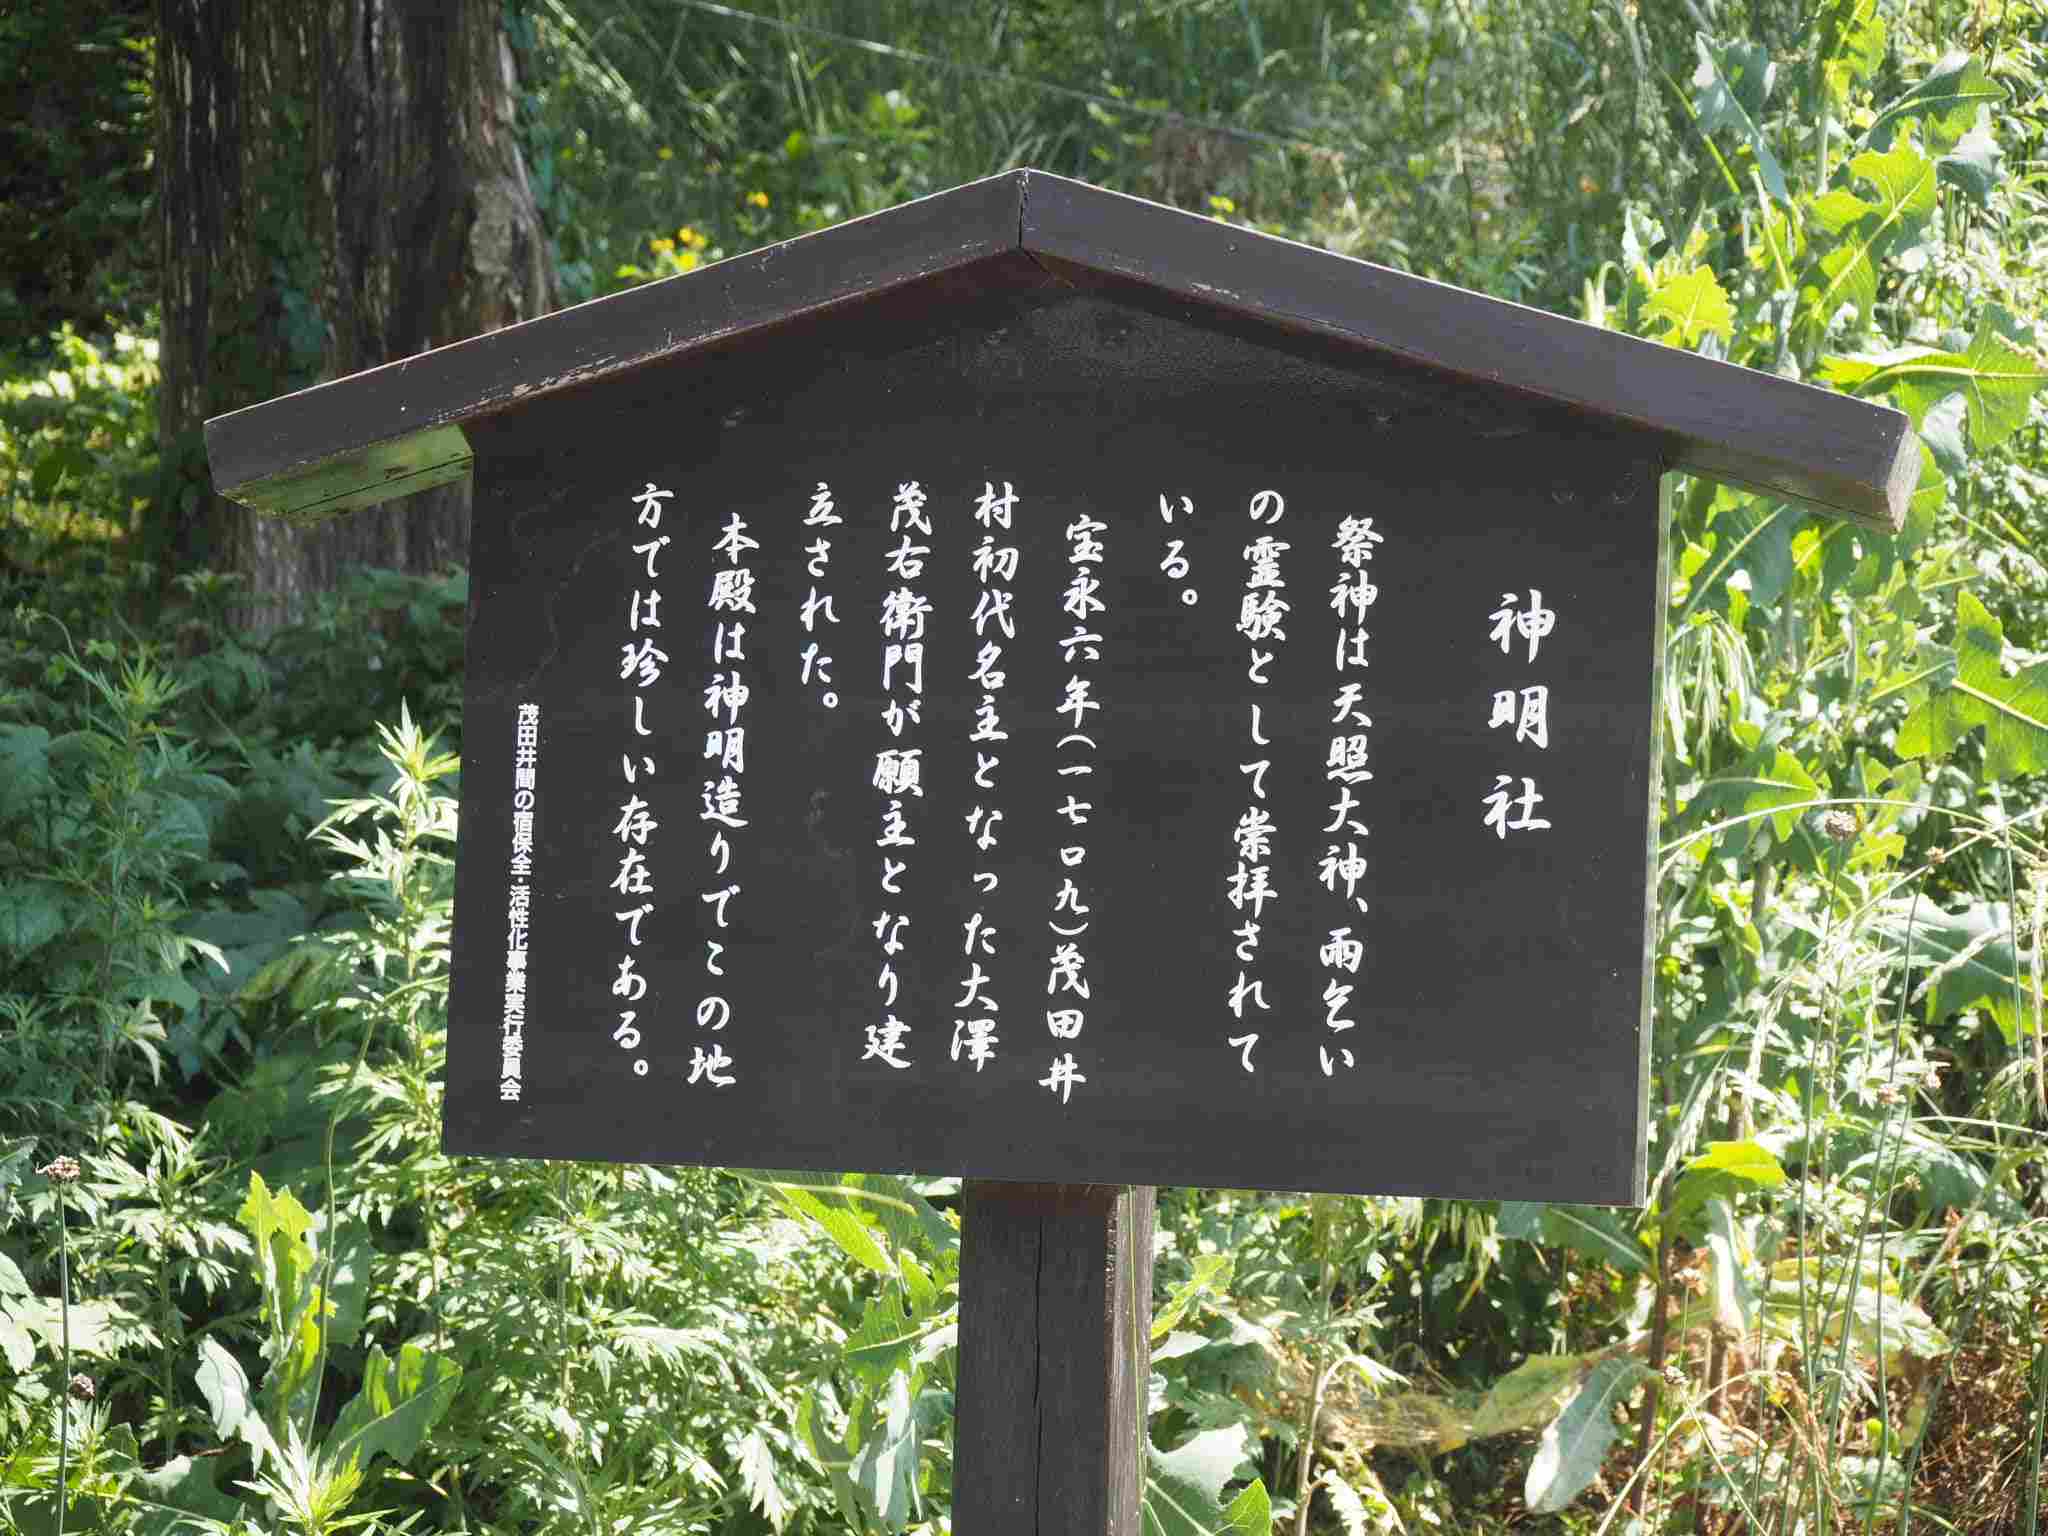 神明社
祭神は天照大神、雨乞い
の霊験として崇拝されて
いる。
宝永六年(一七〇九)茂田井
村初代名主となった大澤
茂右衛門が願主となり建
立された。
本殿は神明造りでこの地
方では珍しい存在である。
茂田井間の宿保全・活性化事業実行委員会